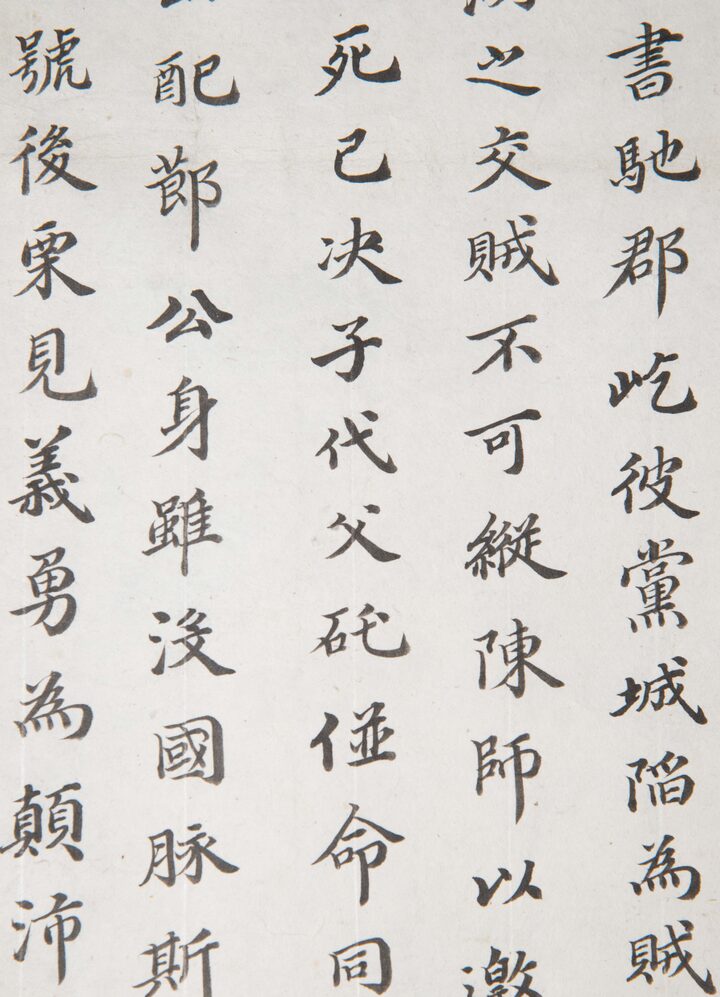 書馳郡屹彼黨城陷為賊
之交賊不可縱陳師以邀
死已决子代父矺傡命同
配莭公身雖沒國脉斯
號後栗見義勇為顛沛